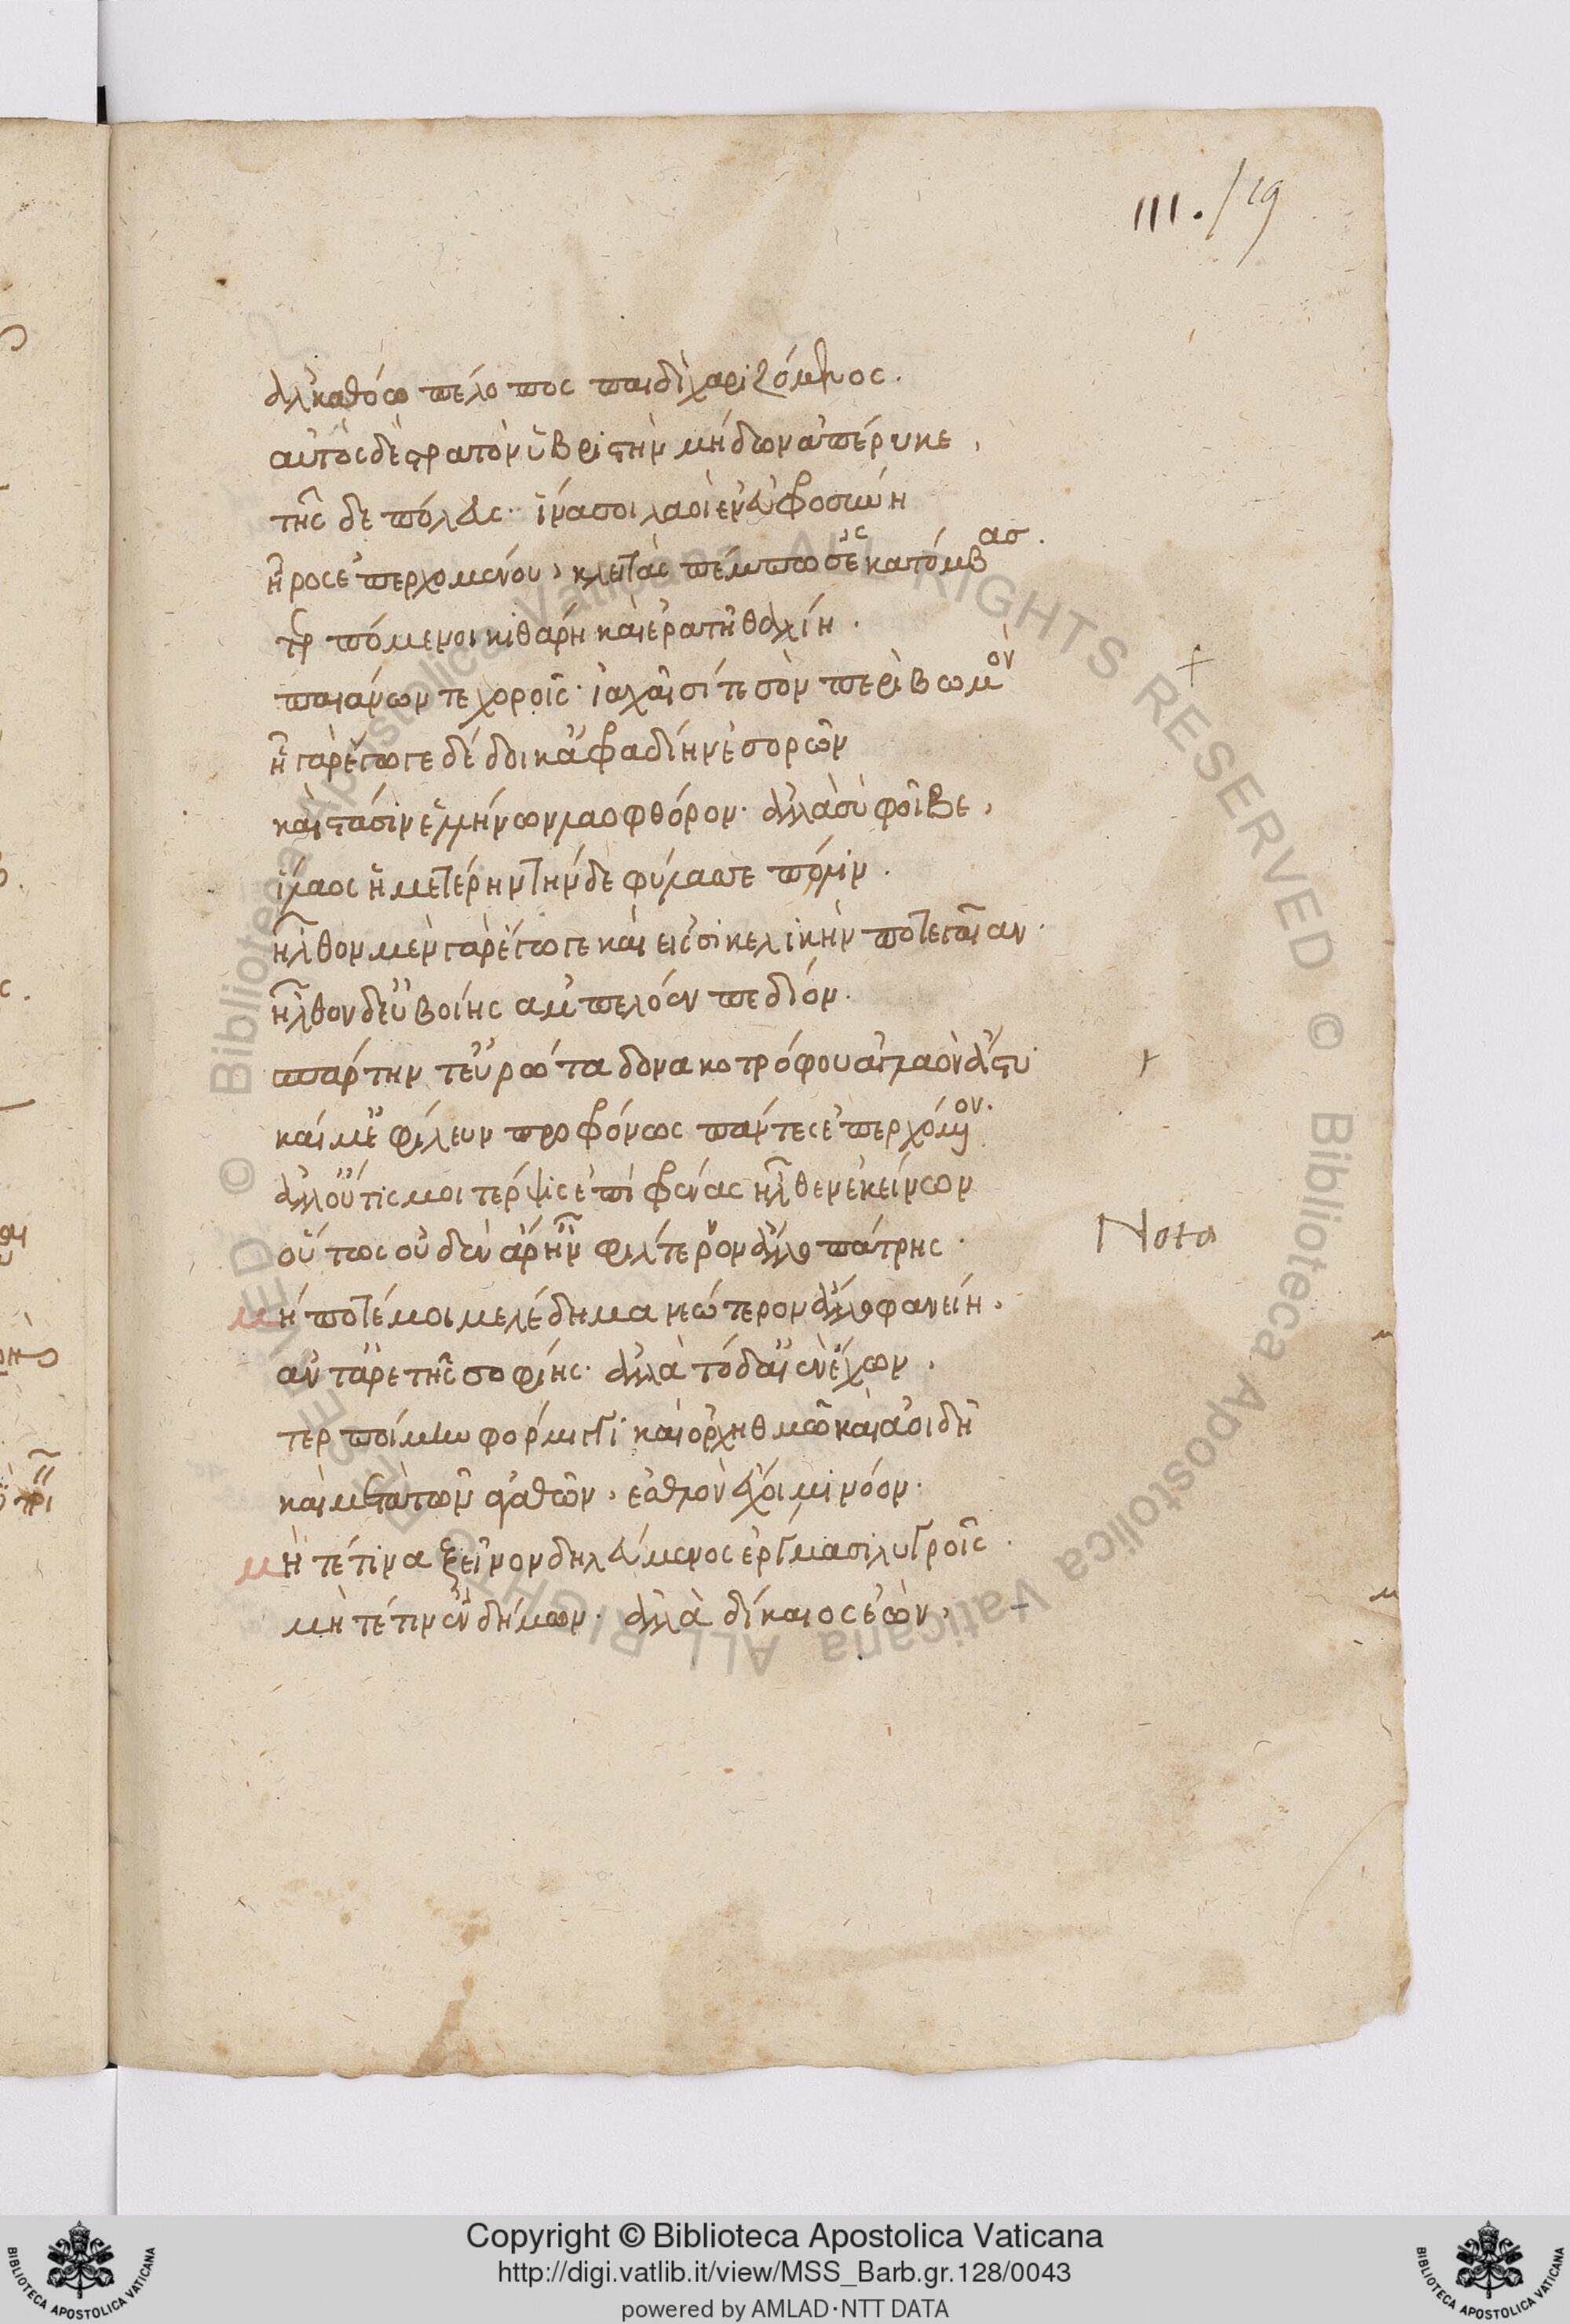 III. / 19
ἀλκαθόω πέλοπος παιδὶ χαριζόμενος.
αὐτὸς δὲ στρατὸν ὑβριστὴν μήδων ἀπέρυκε,
τῆς δε πόλευς· ἵνα σοι λαοὶ ἐν εὐφροσύνη
ἦρος ἐπερχομένου, κλειτὰς πέμπωσ' ἑκατόμβας.
τερπόμενοι κιθάρη καὶ ἐρατῆ θαλίη.
παιάνων τε χοροῖς· ἰαχαῖσί τε σὸν περὶ βωμὸν
ἦ γὰρ ἔγωγε δέδοικ' ἀφραδίην ἐσορῶν
καὶ στάσιν ἑλλήνων λαοφθόρον· ἀλλὰ σὺ φοῖβε,
ἵλαος ἡμετέρην τήνδε φύλασσε πόλιν.
ἦλθον μὲν γὰρ ἔγωγε καὶ εἰς σικελικήν ποτε γαῖαν.
ἦλθον δ' εὐβοίης ἀμπελόεν πεδίον.
σπάρτην τ' εὐρώτα δονακοτρόφου ἀγλαὸν ἄστυ·
καί μ' ἐφίλευν προφρόνως πάντες ἐπερχόμενον.
ἀλλ' οὔτις μοι τέρψις ἐπὶ φρένας ἦλθεν ἐκείνων
οὕτως οὐδὲν ἄρ' ἦν φιλίτερον ἄλλο πάτρης.
Nota
μή ποτέ μοι μελέδημα νεώτερον ἄλλο φανείη.
ἀντ' ἀρετῆς σοφίης· ἀλλὰ τόδ' αἰὲν ἔχων,
τερποίμην φόρμιγγι καὶ ὀρχηθμῶ καὶ ἀοιδῆ
καὶ μετὰ τῶν ἀγαθῶν, ἐσθλὸν ἔχοιμι νόον.
μή τέ τινα ξεῖνον δηλεύμενος ἔργμασι λυγροῖς.
μή τέ τιν' ἐνδήμων· ἀλλὰ δίκαιος ἐὼν,
Copyright © Biblioteca Apostolica Vaticana
http://digi.vatlib.it/view/MSS_Barb.gr.128/0043
powered by AMLAD·NTT DATA
© Biblioteca Apostolica Vaticana ALL RIGHTS RESERVED
© Biblioteca Apostolica Vaticana ALL RIGHTS RESERVED
BIBLIOTECA APOSTOLICA VATICANA
BIBLIOTECA APOSTOLICA VATICANA